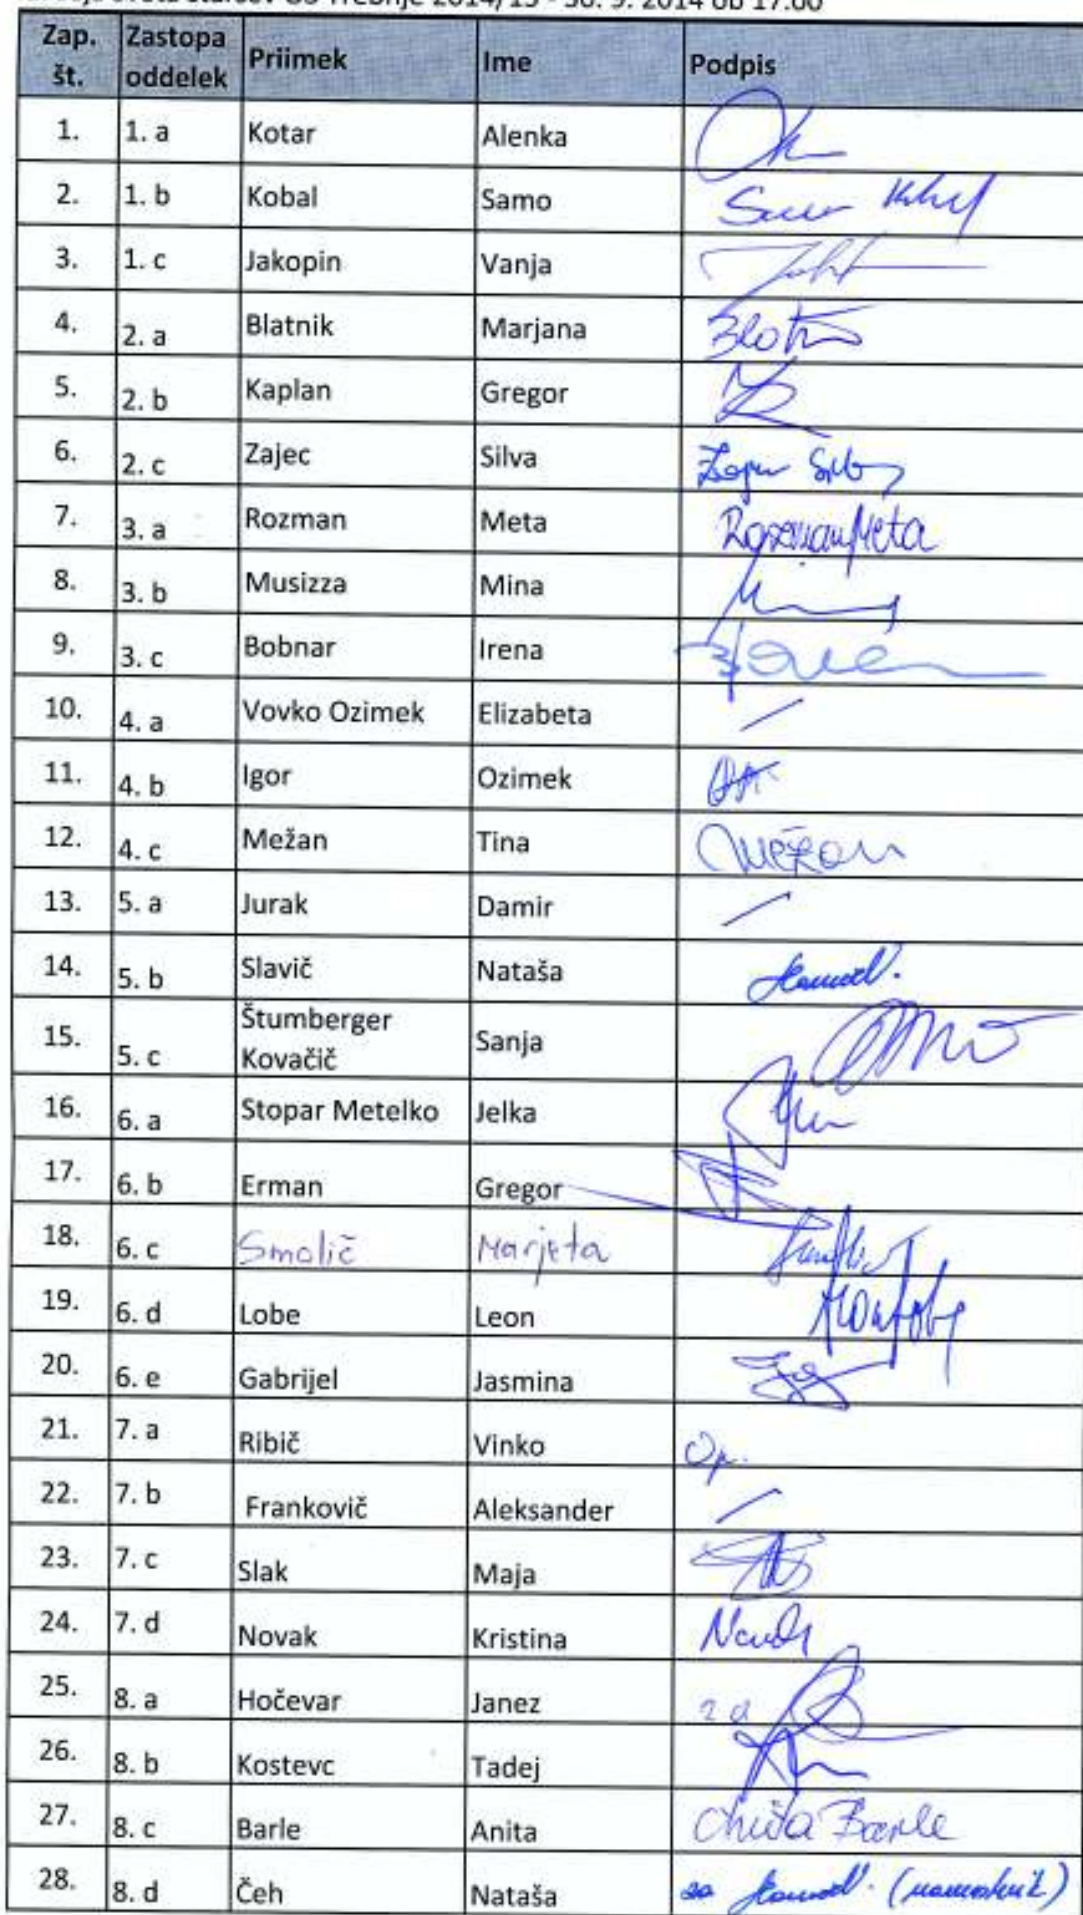 sveta staršev OŠ Trebnje 2014/15 - 30. 9. 2014 ob 17.00
Zap. št. Zastopa oddelek Priimek Ime Podpis
1. 1. a Kotar Alenka
2. 1. b Kobal Samo
3. 1. c Jakopin Vanja
4. 2. a Blatnik Marjana
5. 2. b Kaplan Gregor
6. 2. c Zajec Silva
7. 3. a Rozman Meta Rozman Meta
8. 3. b Musizza Mina
9. 3. c Bobnar Irena
10. 4. a Vovko Ozimek Elizabeta /
11. 4. b Igor Ozimek
12. 4. c Mežan Tina Mežan
13. 5. a Jurak Damir /
14. 5. b Slavič Nataša
15. 5. c Štumberger Kovačič Sanja
16. 6. a Stopar Metelko Jelka
17. 6. b Erman Gregor
18. 6. c Smolič Marjeta
19. 6. d Lobe Leon
20. 6. e Gabrijel Jasmina
21. 7. a Ribič Vinko Op.
22. 7. b Frankovič Aleksander /
23. 7. c Slak Maja
24. 7. d Novak Kristina Novak
25. 8. a Hočevar Janez za
26. 8. b Kostevc Tadej
27. 8. c Barle Anita Anita Barle
28. 8. d Čeh Nataša za (namestnik)